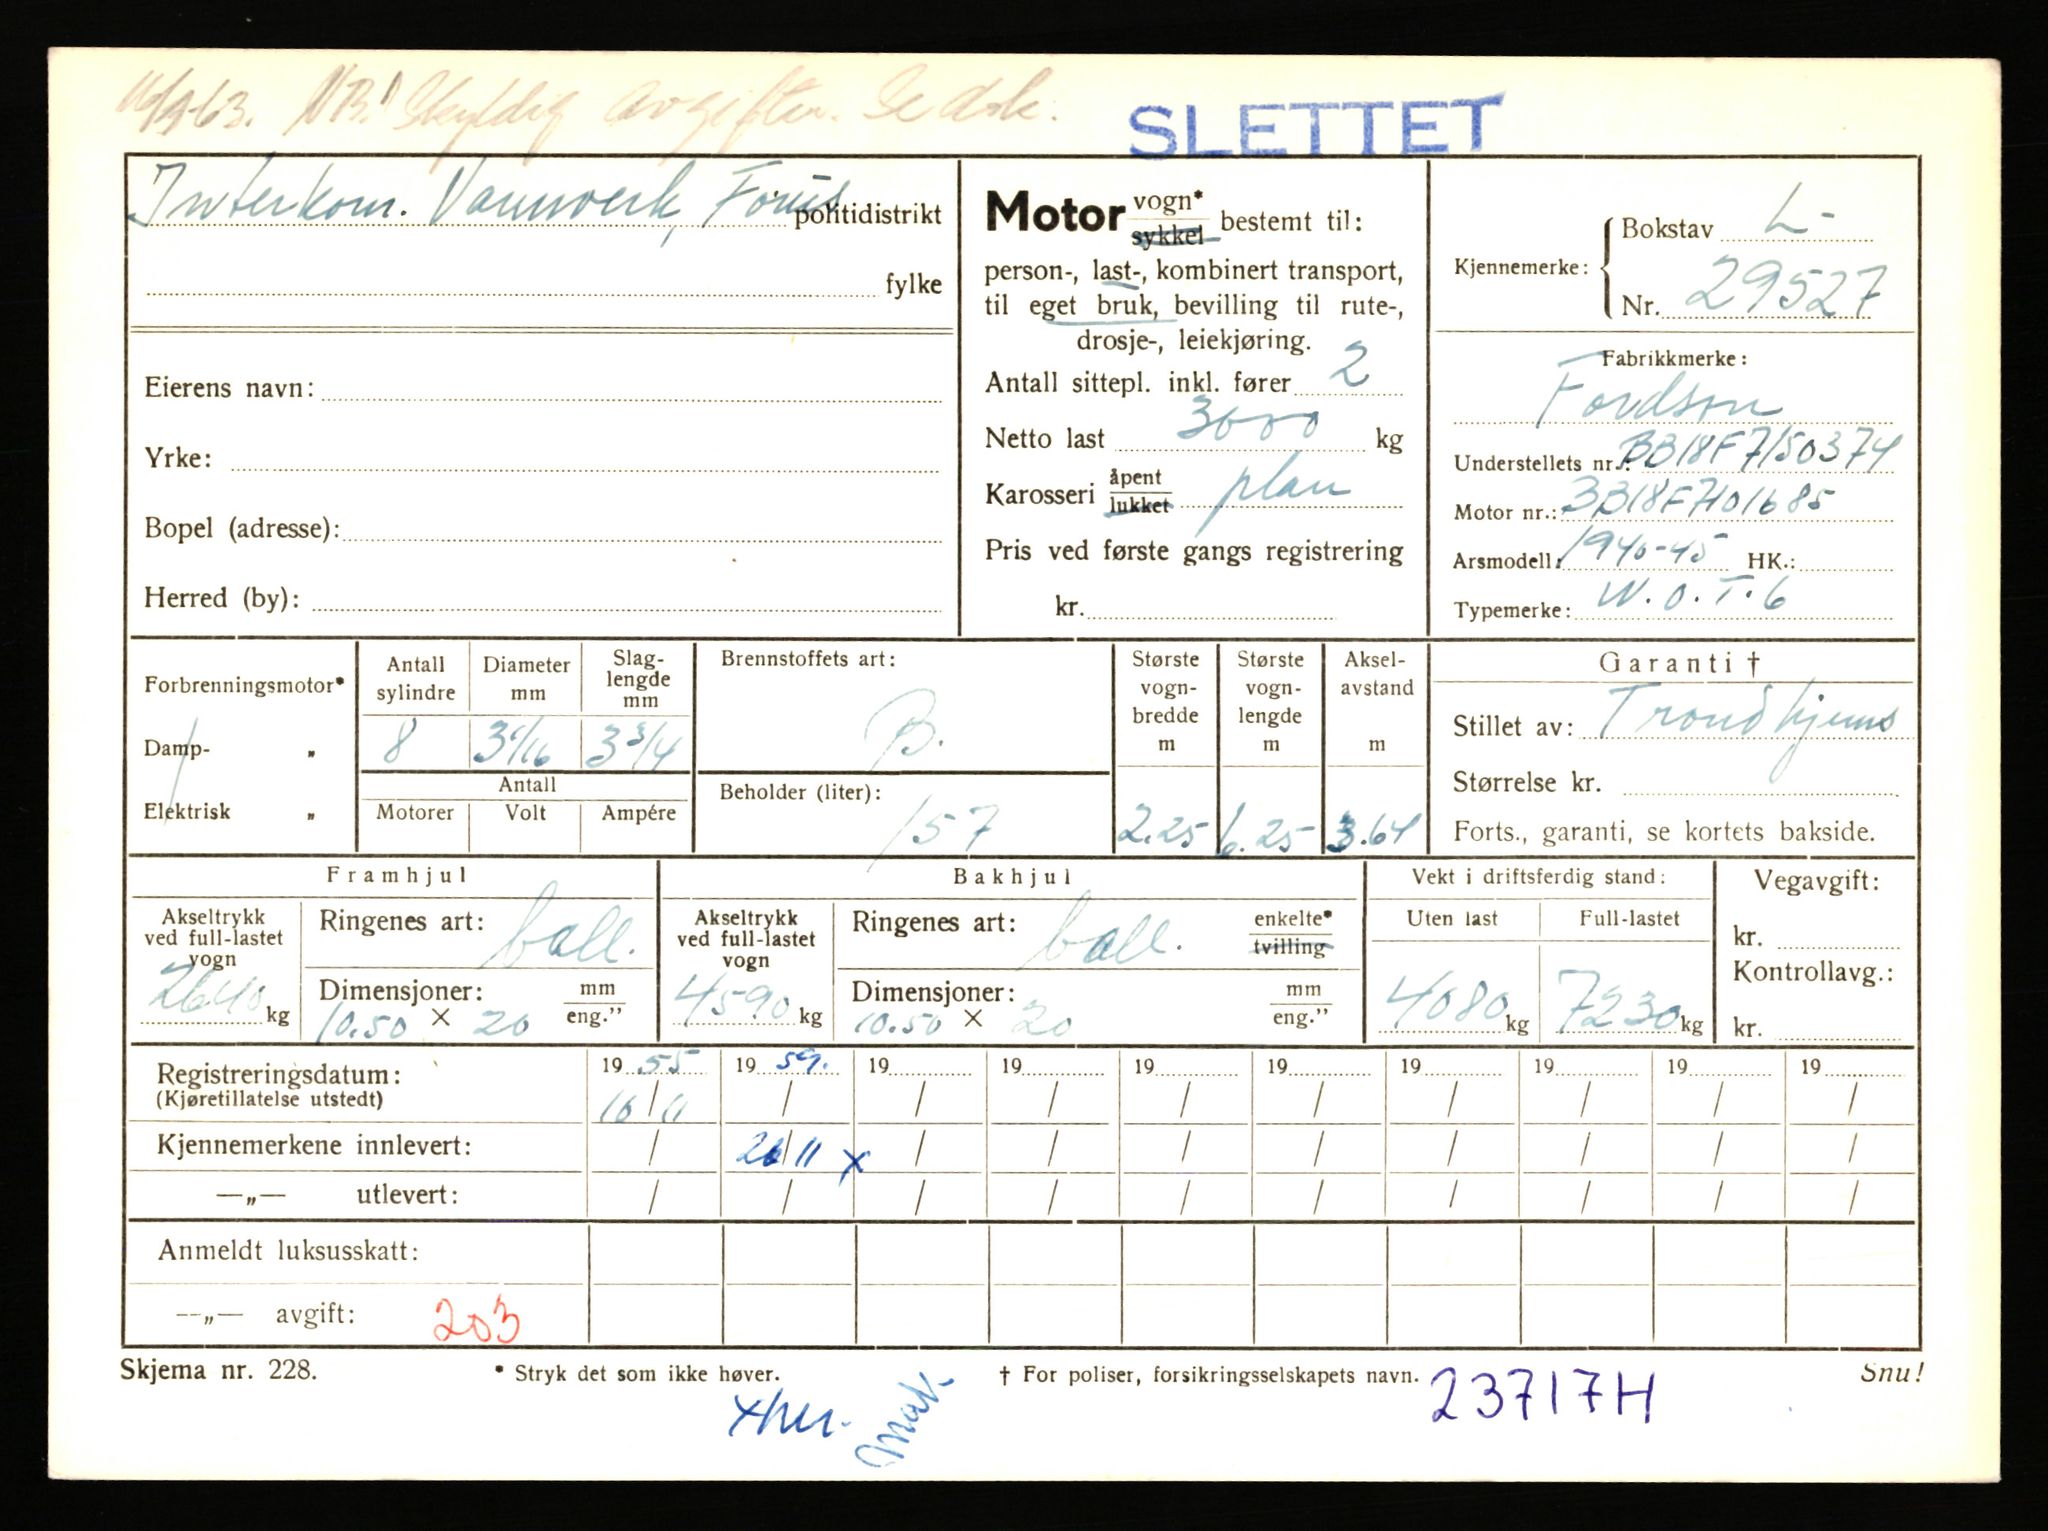 16/9-63. NB! Skyldig avgifter. Se dok.
SLETTET
Interkom. Vannverk, Forus politidistrikt
fylke
Eierens navn:
Yrke:
Bopel (adresse):
Herred (by):
Motor vogn* sykkel bestemt til:
person-, last-, kombinert transport,
til eget bruk, bevilling til rute-,
drosje-, leiekjøring.
Antall sittepl. inkl. fører 2
Netto last 3000 kg
Karosseri åpent lukket plan
Pris ved første gangs registrering
kr.
Kjennemerke: Bokstav L-
Nr. 29527
Fabrikkmerke:
Fordson
Understellets nr.: BB18F7150374
Motor nr.: BB18F7101685
Arsmodell: 1940-45 HK.:
Typemerke: W.O.T.6
Forbrenningsmotor*
Damp- „
Elektrisk „
Antall sylindre
Diameter mm
Slag-lengde mm
8 3 1/16 3 3/4
Antall
Motorer Volt Ampére
Brennstoffets art:
B.
Beholder (liter):
157
Største vogn-bredde m
2.25
Største vogn-lengde m
6.25
Aksel-avstand m
3.64
Garanti †
Stillet av: Trondhjems
Størrelse kr.
Forts., garanti, se kortets bakside.
Framhjul
Akseltrykk ved full-lastet vogn
2640 kg
Ringenes art: ball.
Dimensjoner: mm
10.50 × 20 eng.”
Bakhjul
Akseltrykk ved full-lastet vogn
4590 kg
Ringenes art: ball. enkelte* tvilling
Dimensjoner: mm
10.50 × 20 eng.”
Vekt i driftsferdig stand:
Uten last Full-lastet
4080 kg 7230 kg
Vegavgift:
kr.
Kontrollavg.:
kr.
Registreringsdatum: 19 55 19 59. 19 19 19 19 19 19 19 19
(Kjøretillatelse utstedt) 16/11 / / / / / / / / /
Kjennemerkene innlevert: / 26/11 x / / / / / / / /
—„— utlevert: / / / / / / / / / /
Anmeldt luksusskatt:
—„— avgift: 203
Skjema nr. 228.
* Stryk det som ikke høver.
† For poliser, forsikringsselskapets navn.
23717H
Snu!